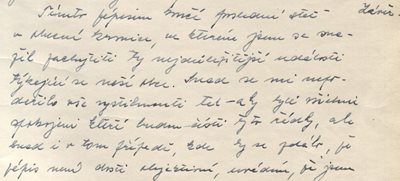 Tímto zápisem končí poslední stať Závěr.
v obecní kronice, ve kterém jsem se sna-
žil zachytiti ty nejdůležitější události
týkající se naší obce. Snad se mi nepo-
dařilo vše vystihnouti tak - aby byli všichni
spokojeni kteří budou čísti tyto řádky, ale
snad i v tom případě, kde by se zdálo, že
zápis není dosti objektivní, uvádím, že jsem